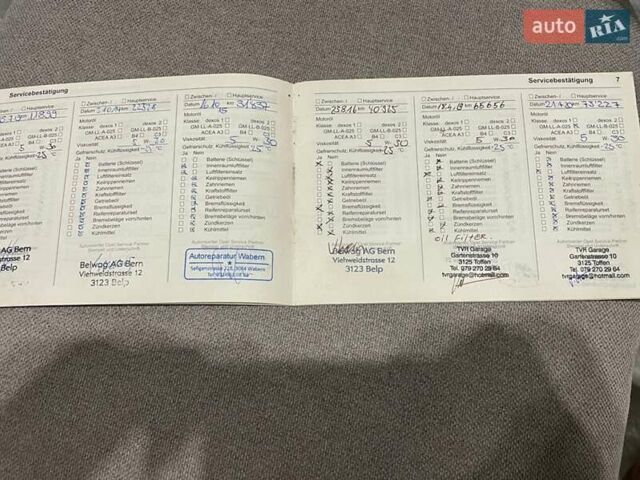 auto RIA.com
Servicebestätigung
Servicebestätigung 7
Zwischen- / Hauptservice
km 11899
Motoröl
dexos 1 dexos 2
GM-LL-A-025 GM-LL-B-025
ACEA A3 B4 C3
5 W 30
Gefrierschutz, Kühlflüssigkeit -25 °C
Ja Nein
Batterie (Schlüssel)
Innenraumluftfilter
Luftfiltereinsatz
Keilrippenriemen
Zahnriemen
Kraftstofffilter
Getriebeöl
Bremsflüssigkeit
Reifenreparaturset
Bremsbeläge vorn/hinten
Zündkerzen
Kühlmittel
AG Bern
Viehweidstrasse 12
3123 Belp
Zwischen- / Hauptservice
Datum km
Motoröl
Klasse: dexos 1 dexos 2
GM-LL-A-025 GM-LL-B-025
ACEA A3 B4 C3
Viskosität 5 W 30
Gefrierschutz, Kühlflüssigkeit -25 °C
Ja Nein
Batterie (Schlüssel)
Innenraumluftfilter
Luftfiltereinsatz
Keilrippenriemen
Zahnriemen
Kraftstofffilter
Getriebeöl
Bremsflüssigkeit
Reifenreparaturset
Bremsbeläge vorn/hinten
Zündkerzen
Kühlmittel
Belwag AG Bern
Viehweidstrasse 12
3123 Belp
Zwischen- / Hauptservice
Datum km 31837
15
Motoröl
Klasse: dexos 1 dexos 2
GM-LL-A-025 GM-LL-B-025
ACEA A3 B4 C3
Viskosität 5 W 30
Gefrierschutz, Kühlflüssigkeit -25 °C
Ja Nein
Batterie (Schlüssel)
Innenraumluftfilter
Luftfiltereinsatz
Keilrippenriemen
Zahnriemen
Kraftstofffilter
Getriebeöl
Bremsflüssigkeit
Reifenreparaturset
Bremsbeläge vorn/hinten
Zündkerzen
Kühlmittel
Autoreparatur Wabern
3084 Wabern
Zwischen- / Hauptservice
Datum 23.8.16 km 40325
Motoröl
Klasse: dexos 1 dexos 2
GM-LL-A-025 GM-LL-B-025
ACEA A3 B4 C3
Viskosität 5 W 30
Gefrierschutz, Kühlflüssigkeit -25 °C
Ja Nein
Batterie (Schlüssel)
Innenraumluftfilter
Luftfiltereinsatz
Keilrippenriemen
Zahnriemen
Kraftstofffilter
Getriebeöl
Bremsflüssigkeit
Reifenreparaturset
Bremsbeläge vorn/hinten
Zündkerzen
Kühlmittel
Belwag AG Bern
Viehweidstrasse 12
3123 Belp
Zwischen- / Hauptservice
Datum km 65656
Motoröl
Klasse: dexos 1 dexos 2
GM-LL-A-025 GM-LL-B-025
ACEA A3 B4 C3
Viskosität 5 W 30
Gefrierschutz, Kühlflüssigkeit -25 °C
Ja Nein
Batterie (Schlüssel)
Innenraumluftfilter
Luftfiltereinsatz
Keilrippenriemen
Zahnriemen
Kraftstofffilter
Getriebeöl
Bremsflüssigkeit
Reifenreparaturset
Bremsbeläge vorn/hinten
Zündkerzen
Kühlmittel
OIL FILTER
TVR Garage
Gartenstrasse 10
3125 Toffen
Tel. 079 270 29 64
tvrgarage@hotmail.com
Zwischen- / Hauptservice
Datum km 73227
Motoröl
Klasse: dexos 1 dexos 2
GM-LL-A-025 GM-LL-B-025
ACEA A3 B4 C3
Viskosität 5 W 30
Gefrierschutz, Kühlflüssigkeit -25 °C
Ja Nein
Batterie (Schlüssel)
Innenraumluftfilter
Luftfiltereinsatz
Keilrippenriemen
Zahnriemen
Kraftstofffilter
Getriebeöl
Bremsflüssigkeit
Reifenreparaturset
Bremsbeläge vorn/hinten
Zündkerzen
Kühlmittel
TVR Garage
Gartenstrasse 10
3125 Toffen
Tel. 079 270 29 64
tvrgarage@hotmail.com